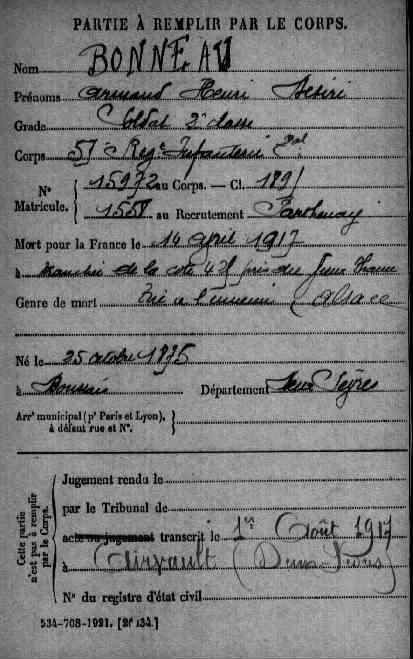 PARTIE À REMPLIR PAR LE CORPS.
Nom BONNEAU
Prénoms Armand Henri Désiré
Grade Soldat 2e classe
Corps 57e Régt Infanterie
N° Matricule. { 15972 au Corps. — Cl. 1895
1558 au Recrutement Parthenay
Mort pour la France le 14 avril 1917
à tranchée de la cote 425 près du Vieux Thann
Genre de mort tué à l'ennemi (Alsace)
Né le 25 octobre 1875
à Boussais Département Deux Sèvres
Arrt municipal (pr Paris et Lyon), }
à défaut rue et N°.
Cette partie n'est pas à remplir par le Corps.
Jugement rendu le
par le Tribunal de
acte ou jugement transcrit le 1er Août 1917
à Airvault (Deux-Sèvres)
N° du registre d'état civil
534-708-1921. [26434.]